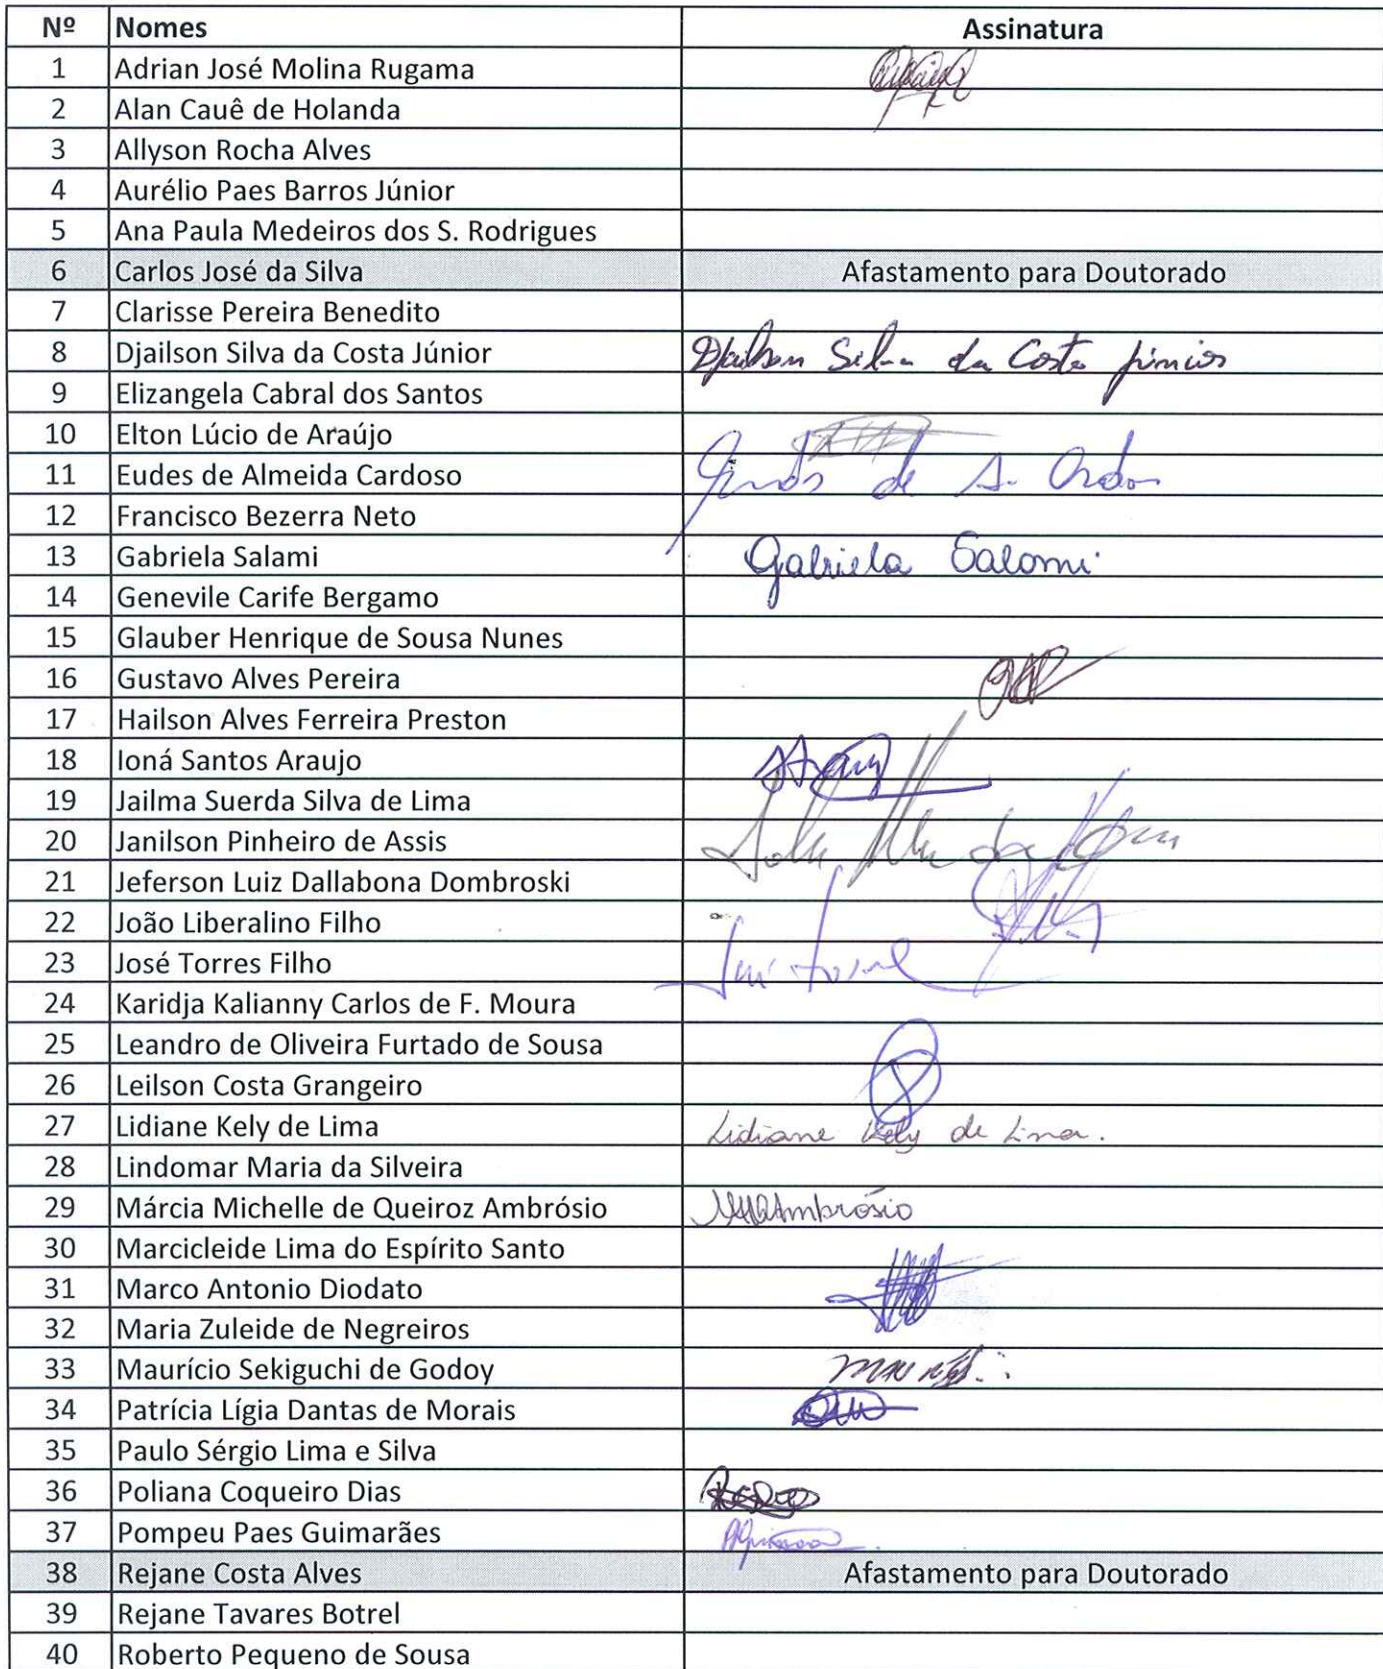 Nº Nomes Assinatura
1 Adrian José Molina Rugama
2 Alan Cauê de Holanda
3 Allyson Rocha Alves
4 Aurélio Paes Barros Júnior
5 Ana Paula Medeiros dos S. Rodrigues
6 Carlos José da Silva Afastamento para Doutorado
7 Clarisse Pereira Benedito
8 Djailson Silva da Costa Júnior Djailson Silva da Costa Júnior
9 Elizangela Cabral dos Santos
10 Elton Lúcio de Araújo
11 Eudes de Almeida Cardoso
12 Francisco Bezerra Neto
13 Gabriela Salami Gabriela Salami
14 Genevile Carife Bergamo
15 Glauber Henrique de Sousa Nunes
16 Gustavo Alves Pereira
17 Hailson Alves Ferreira Preston
18 Ioná Santos Araujo
19 Jailma Suerda Silva de Lima
20 Janilson Pinheiro de Assis
21 Jeferson Luiz Dallabona Dombroski
22 João Liberalino Filho
23 José Torres Filho
24 Karidja Kalianny Carlos de F. Moura
25 Leandro de Oliveira Furtado de Sousa
26 Leilson Costa Grangeiro
27 Lidiane Kely de Lima Lidiane Kely de Lima.
28 Lindomar Maria da Silveira
29 Márcia Michelle de Queiroz Ambrósio MMQAmbrósio
30 Marcicleide Lima do Espírito Santo
31 Marco Antonio Diodato
32 Maria Zuleide de Negreiros
33 Maurício Sekiguchi de Godoy
34 Patrícia Lígia Dantas de Morais
35 Paulo Sérgio Lima e Silva
36 Poliana Coqueiro Dias
37 Pompeu Paes Guimarães
38 Rejane Costa Alves Afastamento para Doutorado
39 Rejane Tavares Botrel
40 Roberto Pequeno de Sousa